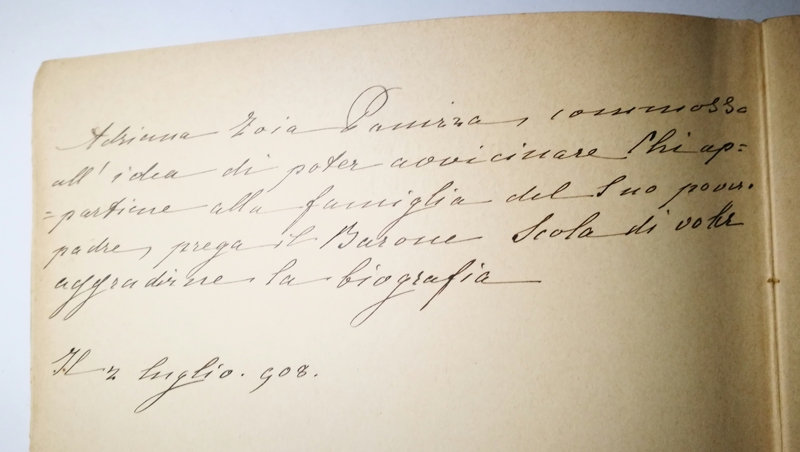 Adriana Zoia Panizza, commossa
all' idea di poter avvicinare Chi ap=
=partiene alla famiglia del Suo pover.
padre, prega il Barone Scola di voler
aggradirne la biografia
Il 2 luglio. 908.